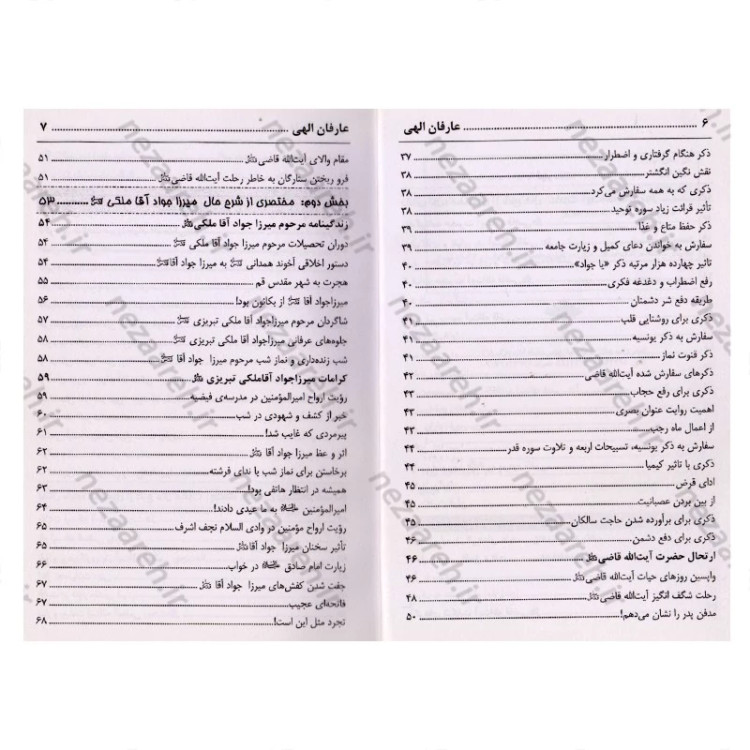 ۶ ........ عارفان الهی
ذکر هنگام گرفتاری و اضطرار ........ ۳۷
نقش نگین انگشتر ........ ۳۸
ذکری که به همه سفارش می‌کرد ........ ۳۸
تأثیر قرائت زیاد سوره توحید ........ ۳۸
ذکر حفظ متاع و غذا ........ ۳۹
سفارش به خواندن دعای کمیل و زیارت جامعه ........ ۳۹
تاثیر چهارده هزار مرتبه ذکر «یا جواد» ........ ۴۰
رفع اضطراب و دغدغه فکری ........ ۴۰
طریقه دفع شر دشمنان ........ ۴۰
ذکری برای روشنایی قلب ........ ۴۱
سفارش به ذکر یونسیه ........ ۴۱
ذکر قنوت نماز ........ ۴۱
ذکرهای سفارش شده آیت‌الله قاضی ........ ۴۲
ذکری برای رفع حجاب ........ ۴۳
اهمیت روایت عنوان بصری ........ ۴۳
از اعمال ماه رجب ........ ۴۳
سفارش به ذکر یونسیه، تسبیحات اربعه و تلاوت سوره قدر ........ ۴۴
ذکری با تاثیر کیمیا ........ ۴۴
ادای قرض ........ ۴۵
از بین بردن عصبانیت ........ ۴۵
ذکری برای برآورده شدن حاجت سالکان ........ ۴۵
ذکری برای دفع دشمن ........ ۴۶
ارتحال حضرت آیت‌الله قاضی ........ ۴۶
واپسین روزهای حیات آیت‌الله قاضی ........ ۴۶
رحلت شگف انگیز آیت‌الله قاضی ........ ۴۸
مدفن پدر را نشان می‌دهم! ........ ۵۰
عارفان الهی ........ ۷
مقام والای آیت‌الله قاضی ........ ۵۱
فرو ریختن ستارگان به خاطر رحلت آیت‌الله قاضی ........ ۵۱
بخش دوم: مختصری از شرح حال میرزا جواد آقا ملکی ........ ۵۳
زندگینامه مرحوم میرزا جواد آقا ملکی ........ ۵۴
دوران تحصیلات مرحوم میرزا جواد آقا ملکی ........ ۵۴
دستور اخلاقی آخوند همدانی به میرزا جواد آقا ........ ۵۴
هجرت به شهر مقدس قم ........ ۵۵
میرزاجواد آقا از بکائون بود! ........ ۵۶
شاگردان مرحوم میرزاجواد آقا ملکی تبریزی ........ ۵۷
جلوه‌های عرفانی میرزاجواد آقا ملکی تبریزی ........ ۵۸
شب زنده‌داری و نماز شب مرحوم میرزا جواد آقا ........ ۵۸
کرامات میرزاجواد آقاملکی تبریزی ........ ۵۹
رؤیت ارواح امیرالمؤمنین در مدرسه‌ی فیضیه ........ ۵۹
خبر از کشف و شهودی در شب ........ ۶۰
پیرمردی که غایب شد! ........ ۶۱
اثر و عظ میرزا جواد آقا ........ ۶۲
برخاستن برای نماز شب با ندای فرشته ........ ۶۲
همیشه در انتظار هاتفی بود! ........ ۶۳
امیرالمؤمنین به ما عیدی دادند! ........ ۶۴
رؤیت ارواح مؤمنین در وادی السلام نجف اشرف ........ ۶۵
تأثیر سخنان میرزا جواد آقا ........ ۶۵
زیارت امام صادق در خواب ........ ۶۶
جفت شدن کفش‌های میرزا جواد آقا ........ ۶۷
فاتحه‌ای عجیب ........ ۶۷
تجرد مثل این است! ........ ۶۸
nezaareh.ir